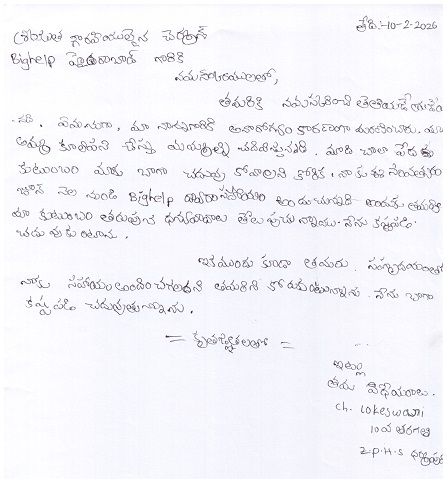 తేది:-10-2-2026
శ్రీయుత గౌరవనీయులైన చైర్మన్
Bighelp హైదరాబాద్ గారికి
నమస్కారములతో,
తమరికి నమస్కరించి తెలియజేయునది
ఏమనగా, మా నాన్నగారికి అనారోగ్యం కారణంగా మరణించారు. మా
అమ్మ కూలిపని చేస్తు మమ్మల్ని చదివిస్తున్నది. మాది చాలా పేద
కుటుంబం మాకు బాగా చదువు కోవాలని కోరిక, నాకు ఈ సంవత్సరం
జూన్ నెల నుండి Bighelp ద్వారా సహాయం అందుచున్నది. అందుకు తమరికి
మా కుటుంబం తరుపున ధన్యవాదాలు తెలుపుచున్నాము. నేను కష్టపడి
చదువుకుంటాను.
ఇకముందు కూడా తమరు సహృదయంతో
నాకు సహాయం అందించగలరని తమరిని కోరుకుంటున్నాను. నేను బాగా
కష్టపడి చదువుతున్నాను.
= కృతజ్ఞతలతో =
ఇట్లు
తమ విధేయురాలు.
Ch. Lokeswari
10వ తరగతి
Z.P.H.S